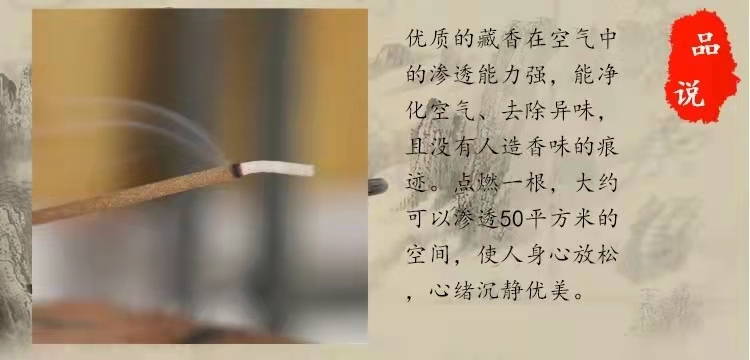 优质的藏香在空气中
的渗透能力强，能净
化空气、去除异味，
且没有人造香味的痕
迹。点燃一根，大约
可以渗透50平方米的
空间，使人身心放松
，心绪沉静优美。
品
说